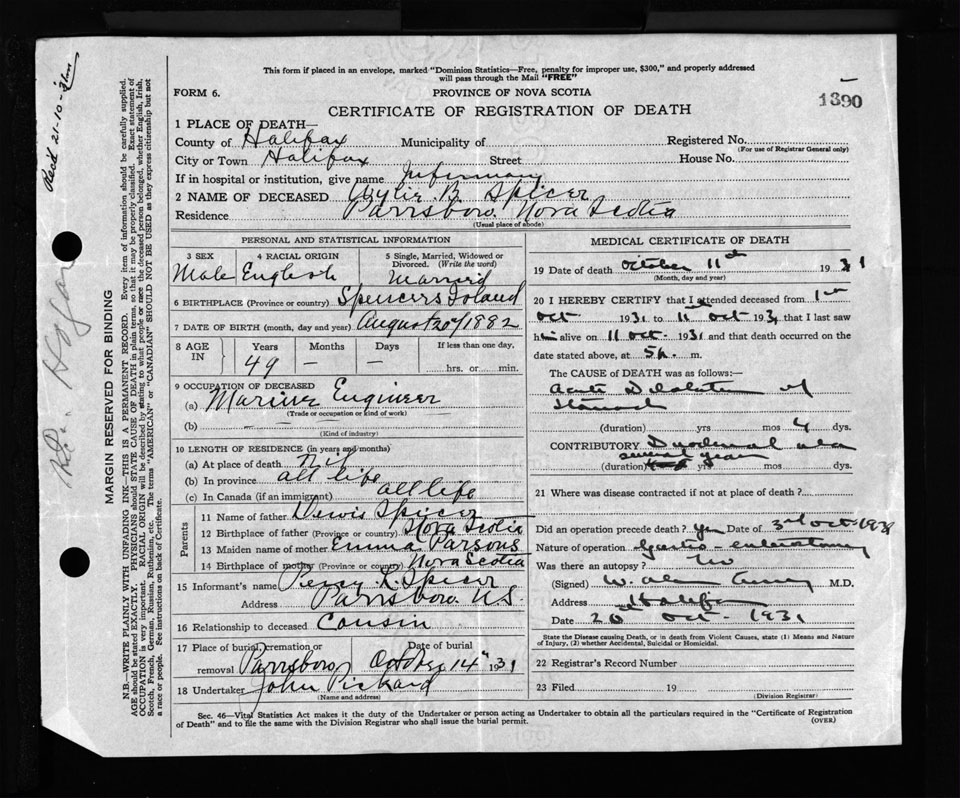 This form if placed in an envelope, marked "Dominion Statistics—Free, penalty for improper use, $300," and properly addressed
will pass through the Mail "FREE"
FORM 6. PROVINCE OF NOVA SCOTIA
1390
CERTIFICATE OF REGISTRATION OF DEATH
1 PLACE OF DEATH—
County of Halifax Municipality of Registered No.
(For use of Registrar General only)
City or Town Halifax Street House No.
If in hospital or institution, give name Infirmary
2 NAME OF DECEASED Wylie B. Spicer
Residence Parrsboro Nova Scotia
(Usual place of abode)
PERSONAL AND STATISTICAL INFORMATION
3 SEX 4 RACIAL ORIGIN 5 Single, Married, Widowed or
Divorced. (Write the word)
Male English Married
6 BIRTHPLACE (Province or country) Spencers Island
7 DATE OF BIRTH (month, day and year) August 20th 1882
8 AGE IN Years Months Days If less than one day,
49 — — hrs. or min.
9 OCCUPATION OF DECEASED
(a) Marine Engineer
(Trade or occupation or kind of work)
(b) — —
(Kind of industry)
10 LENGTH OF RESIDENCE (in years and months)
(a) At place of death Nil
(b) In province all life
(c) In Canada (if an immigrant) all life
Parents
11 Name of father Dewis Spicer
12 Birthplace of father (Province or country) Nova Scotia
13 Maiden name of mother Emma Parsons
14 Birthplace of mother (Province or country) Nova Scotia
15 Informant's name Percy L. Spicer
Address Parrsboro N.S.
16 Relationship to deceased Cousin
17 Place of burial, cremation or Date of burial
removal Parrsboro October 14th 1931
18 Undertaker John Pickard
(Name and address)
MEDICAL CERTIFICATE OF DEATH
19 Date of death October 11th 1931
(Month, day and year)
20 I HEREBY CERTIFY that I attended deceased from 1st
Oct 1931 to 11th Oct 1931 that I last saw
him alive on 11 Oct. 1931 and that death occurred on the
date stated above, at 5 m.
The CAUSE OF DEATH was as follows:—
Acute Dilatation of
Stomach
(duration) yrs mos 4 dys.
CONTRIBUTORY Duodenal ulcer
several years
(duration) yrs mos dys.
21 Where was disease contracted if not at place of death?
Did an operation precede death? yes Date of 3rd Oct 1931
Nature of operation Gastro-enterostomy
Was there an autopsy? No
(Signed) W. M.D.
Address Halifax
Date 20th Oct. 1931
State the Disease causing Death, or in death from Violent Causes, state (1) Means and Nature
of Injury, (2) whether Accidental, Suicidal or Homicidal.
22 Registrar's Record Number
23 Filed 19
(Division Registrar)
Sec. 46—Vital Statistics Act makes it the duty of the Undertaker or person acting as Undertaker to obtain all the particulars required in the "Certificate of Registration
of Death" and to file the same with the Division Registrar who shall issue the burial permit. (OVER)
MARGIN RESERVED FOR BINDING
N.B.—WRITE PLAINLY WITH UNFADING INK—THIS IS A PERMANENT RECORD. Every item of information should be carefully supplied.
AGE should be stated EXACTLY. PHYSICIANS should STATE CAUSE OF DEATH in plain terms, so that it may be properly classified. Exact statement of
OCCUPATION is very important. RACIAL ORIGIN will be described by stating to what people or race the deceased person belonged, whether English, Irish,
Scotch, French, German, Russian, Ruthenian, etc. The terms "AMERICAN" or "CANADIAN" SHOULD NOT BE USED as they express citizenship but not
a race or people. See instructions on back of Certificate.
Rec'd 21-10-31